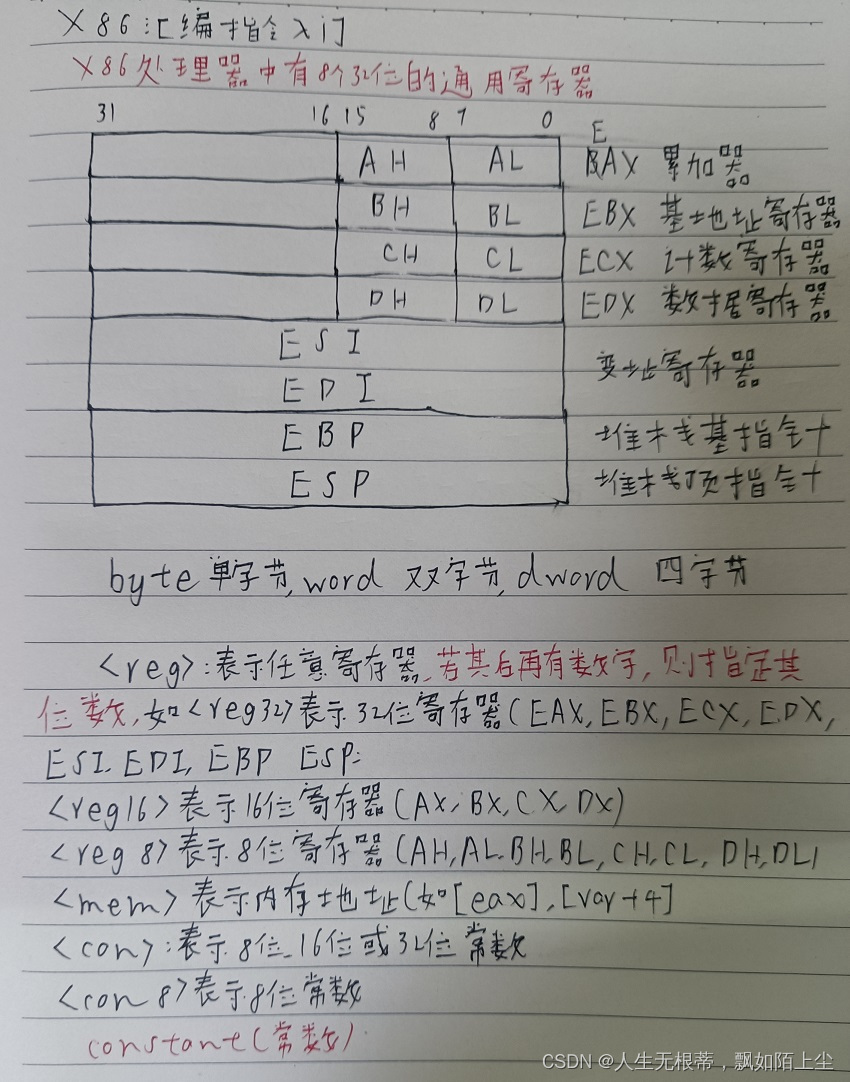 X86汇编指令入门
X86处理器中有8个32位的通用寄存器
31 16 15 8 7 0
AH AL EAX 累加器
BH BL EBX 基地址寄存器
CH CL ECX 计数寄存器
DH DL EDX 数据寄存器
ESI
变址寄存器
EDI
EBP 堆栈基指针
ESP 堆栈顶指针
byte 单字节, word 双字节, dword 四字节
<reg>:表示任意寄存器,若其后再有数字,则指定其
位数,如<reg32>表示32位寄存器(EAX, EBX, ECX, EDX,
ESI, EDI, EBP ESP:
<reg16>表示16位寄存器(AX, BX, CX, DX)
<reg 8>表示8位寄存器(AH, AL, BH, BL, CH, CL, DH, DL)
<mem>表示内存地址(如[eax],[var+4]
<con>:表示8位、16位或32位常数
<con 8>表示8位常数
constant(常数)
CSDN @人生无根蒂,飘如陌上尘